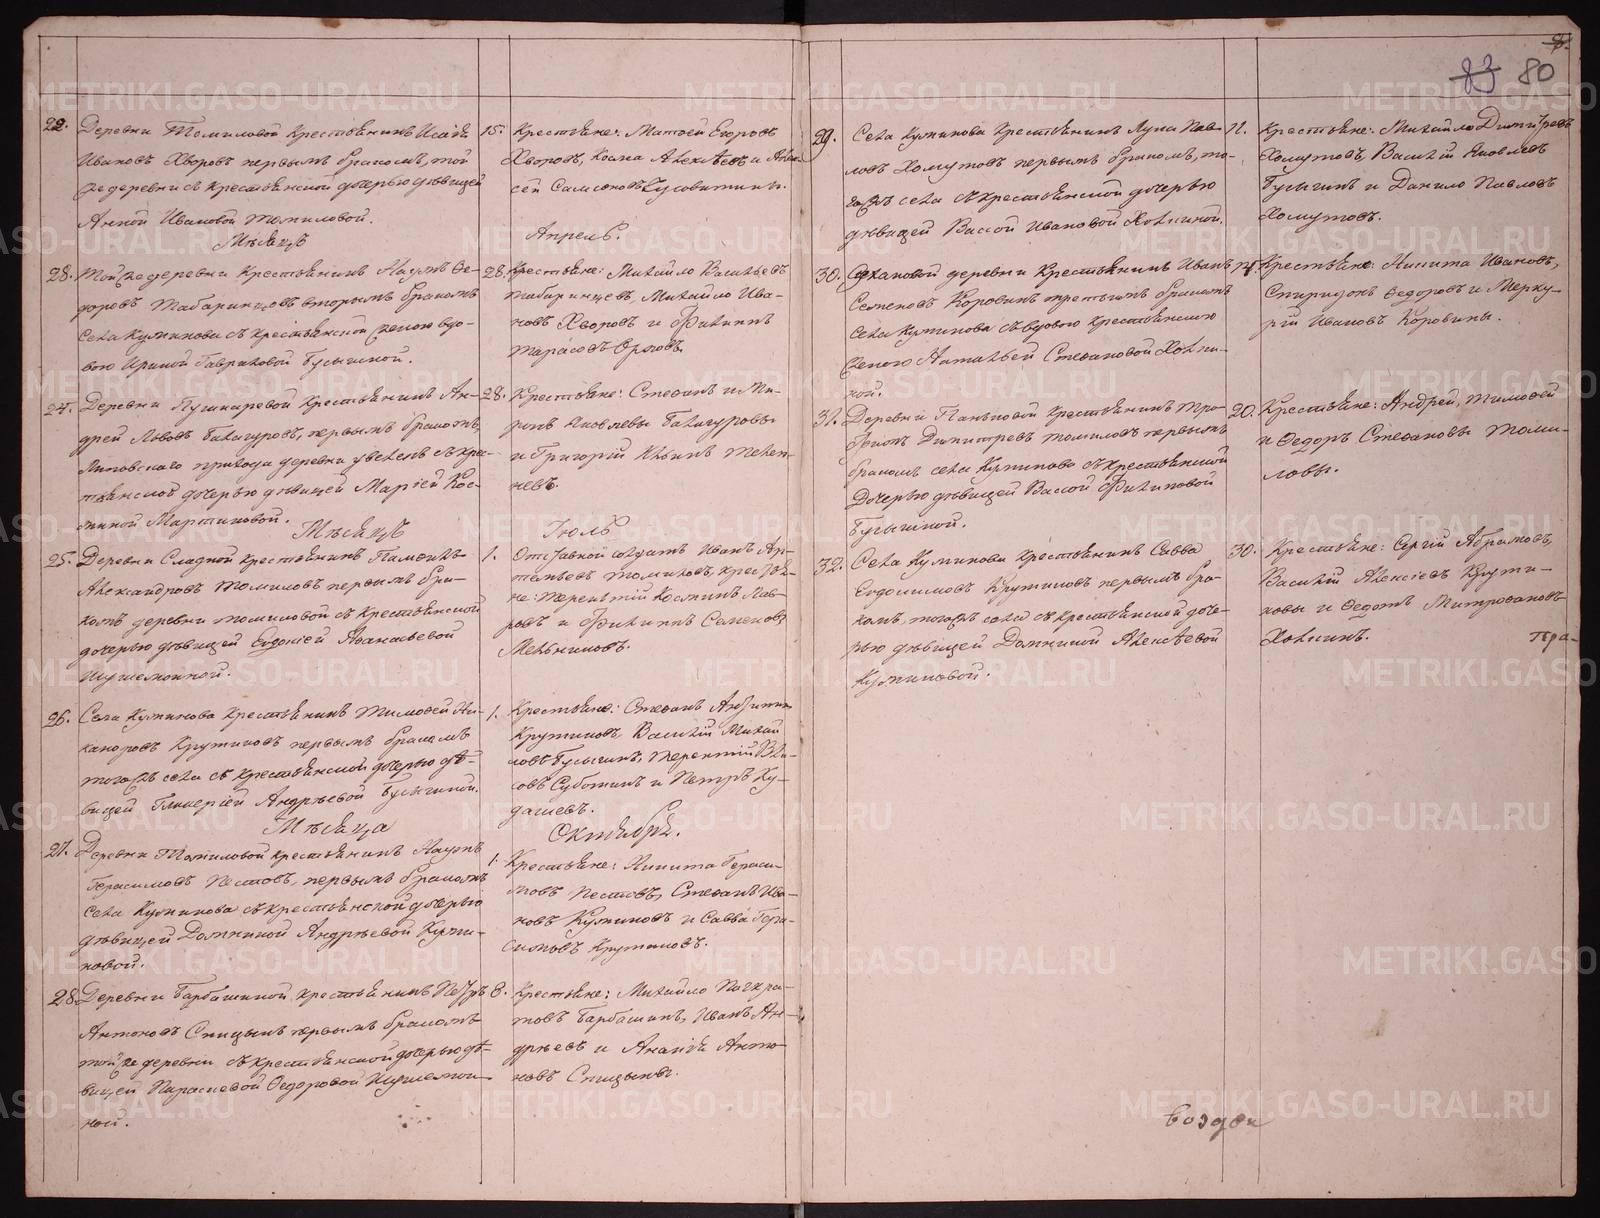 83 80
22. Деревни Томиловой крестьянинъ Исаія
Ивановъ Хворовъ первымъ бракомъ, той
же деревни съ крестьянской дочерью дѣвицей
Анной Ивановой Томиловой.
15. Крестьяне: Матѳей Егоровъ
Хворовъ, Косма Алексѣевъ и Алек-
сѣй Самсоновъ Чусовитины.
Мѣсяцъ
Апрель.
28. Той же деревни крестьянинъ Наумъ Ѳе-
доровъ Табаринцовъ вторымъ бракомъ
села Куминова съ крестьянской женою вдо-
вою Ириной Гавриловой Бусыгиной.
28. Крестьяне: Михайло Васильевъ
Табаринцевъ, Михайло Ива-
новъ Хворовъ и Филиппъ
Тарасовъ Орловъ.
24. Деревни Пушкаревой крестьянинъ Ан-
дрей Львовъ Балагуровъ, первымъ бракомъ,
Липовскаго прихода деревни съ крес-
тьянской дочерью дѣвицей Маріей Кос-
миной Мартиновой.
28. Крестьяне: Стефанъ и Ми-
ронъ Яковлевы Балагуровы
и Григорій Ильинъ Телен-
невъ.
Мѣсяцъ
Іюль
25. Деревни Сладной крестьянинъ Памфилъ
Александровъ Томиловъ первымъ бра-
комъ деревни Томиловой съ крестьянской
дочерью дѣвицей Евдокіей Аѳанасьевой
Шушемойной.
1. Отставной солдатъ Иванъ Ар-
темьевъ Томиловъ, крестья-
не: Терентій Косминъ Лав-
ровъ и Филиппъ Семеновъ
Мельниковъ.
26. Села Куминова крестьянинъ Тимоѳей Ни-
каноровъ Крутиковъ первымъ бракомъ
тогожъ села съ крестьянской дочерью дѣ-
вицей Гликеріей Андрѣевой Бусыгиной.
1. Крестьяне: Стефанъ
Крутиковъ Василій Михай-
ловъ Бусыгинъ, Терентій
совъ Суботинъ и Петръ Ку-
дашевъ.
Мѣсяца
Октября.
27. Деревни Томиловой крестьянинъ Наумъ
Герасимовъ Пестовъ, первымъ бракомъ
села Куминова съ крестьянской дочерью
дѣвицей Домникой Андрѣевой Куми-
новой.
1. Крестьяне: Никита Гераси-
мовъ Пестовъ, Стефанъ Ива-
новъ Куминовъ и Савва Гера-
симовъ Крутиковъ.
28. Деревни Барбашиной, крестьянинъ Петръ
Антоновъ Спицынъ первымъ бракомъ
той же деревни съ крестьянской дочерью дѣ-
вицей Параскевой Ѳедоровой Шушемой-
ной.
8. Крестьяне: Михайло Панкра-
товъ Барбашинъ, Иванъ Ан-
дрѣевъ и Ананій Анто-
новъ Спицыны.
29. Села Куминова крестьянинъ Лука Пав-
ловъ Хомутовъ первымъ бракомъ, то-
гожъ села съ крестьянской дочерью
дѣвицей Вассой Ивановой Холкиной.
12. Крестьяне: Михайло Димитревъ
Хомутовъ, Василій Яковлевъ
Бусыгинъ и Данило Павловъ
Хомутовъ.
30. деревни крестьянинъ Иванъ
Семеновъ Коровинъ третьимъ бракомъ
села Куминова съ вдовою крестьянскою
женою Натальей Стефановой Холки-
ной.
Крестьяне: Никита Ивановъ,
Спиридонъ Ѳедоровъ и Мерку-
рій Ивановъ Коровины.
31. Деревни Паньковой крестьянинъ Тро-
фимъ Димитревъ Томиловъ первымъ
бракомъ села Куминова съ крестьянской
дочерью дѣвицей Вассой Филиповой
Бусыгиной.
20. Крестьяне: Андрей, Тимоѳей
и Ѳедоръ Стефановы Томи-
ловы.
32. Села Куминова крестьянинъ Савва
Евдокимовъ Крутиковъ первымъ бра-
комъ, тогожъ села съ крестьянской доче-
рью дѣвицей Домникой Алексѣевой
Куминовой.
30. Крестьяне: Сергій Абрамовъ,
Василій Алексіевъ Крути-
ковы и Ѳедотъ Митрофановъ
Холкинъ.
METRIKI.GASO-URAL.RU